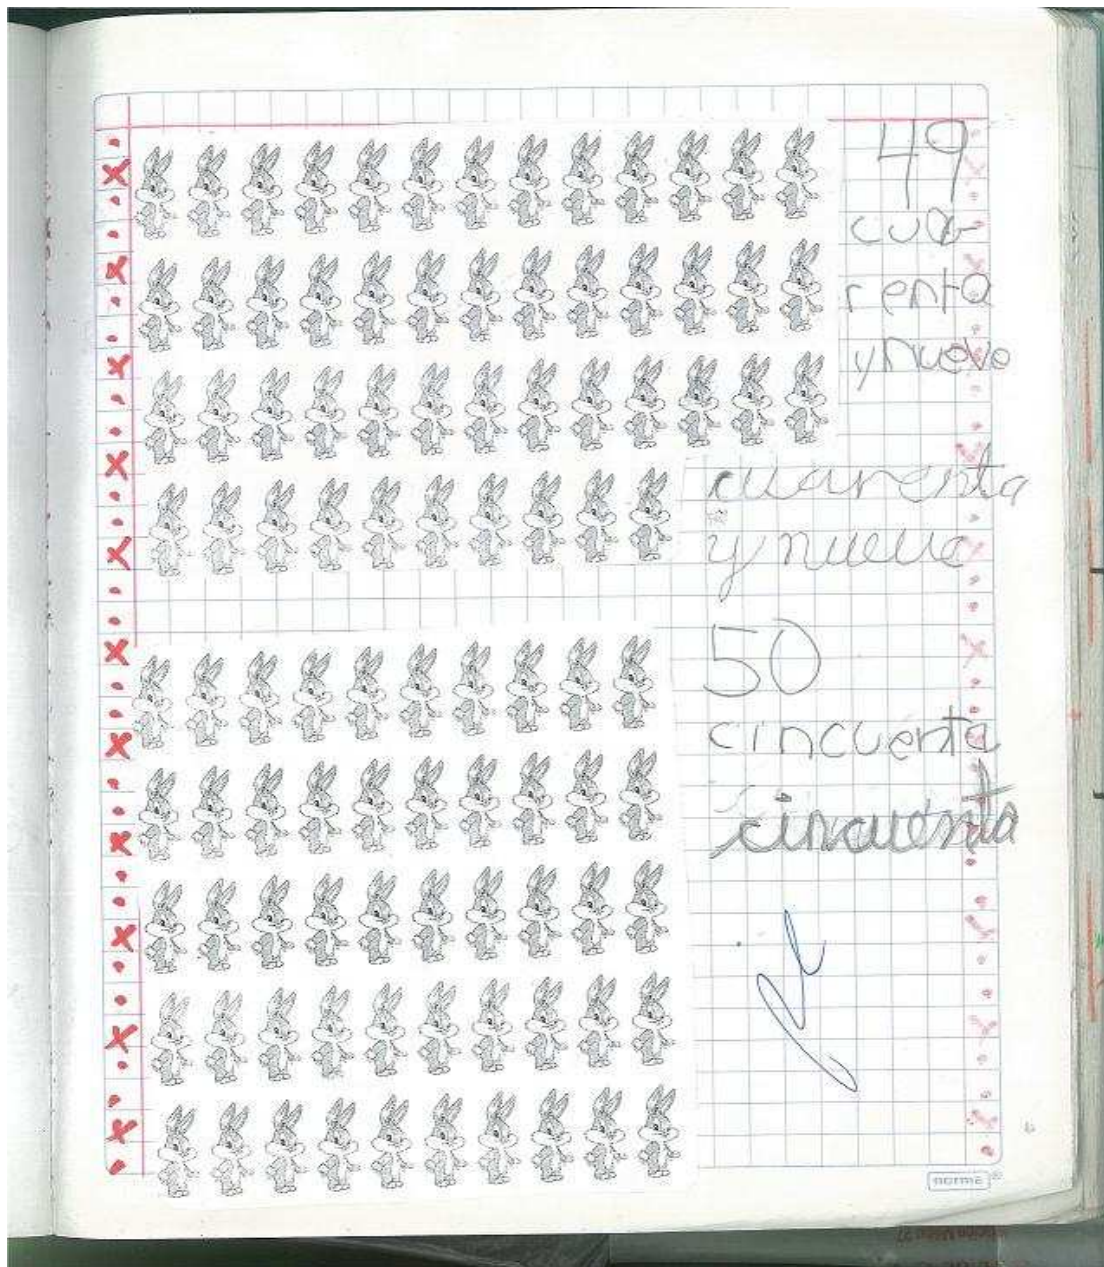 49
cua
renta
y nueve
cuarenta
y nueve
50
cincuenta
cincuenta
norma